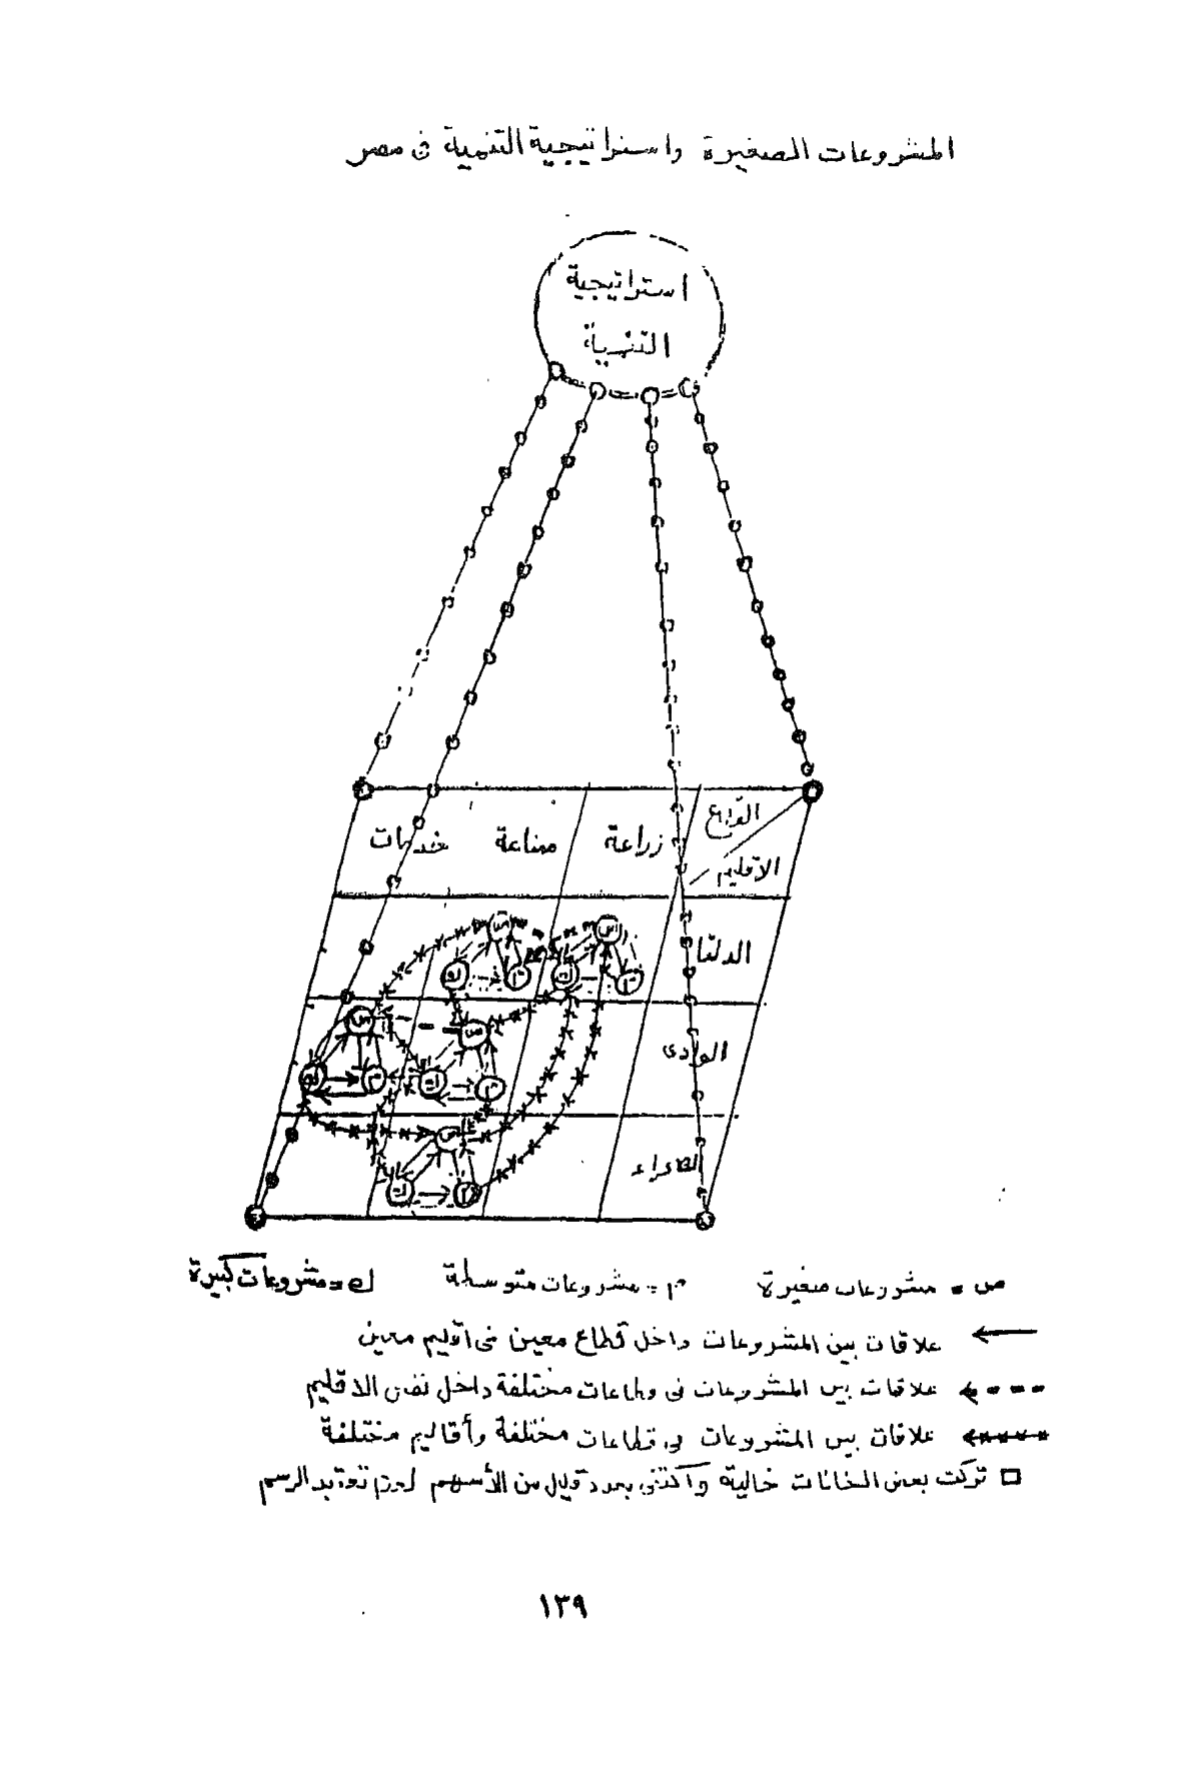 المشروعات الصغيرة واستراتيجية التنمية فى مصر
استراتيجية
التنمية
القطاع
زراعة
صناعة
خدمات
الاقليم
الدلتا
ص
ص
ك
م
ك
م
الوادى
ص
ص
ك
م
ك
م
الصحراء
ص
ك
م
ص = مشروعات صغيرة م = مشروعات متوسطة ك = مشروعات كبيرة
علاقات بين المشروعات داخل قطاع معين فى اقليم معين
علاقات بين المشروعات فى قطاعات مختلفة داخل نفس الاقليم
علاقات بين المشروعات فى قطاعات مختلفة وأقاليم مختلفة
تركت بعض الخانات خالية واكتفى بعدد قليل من الأسهم لعدم تعقيد الرسم
١٣٩